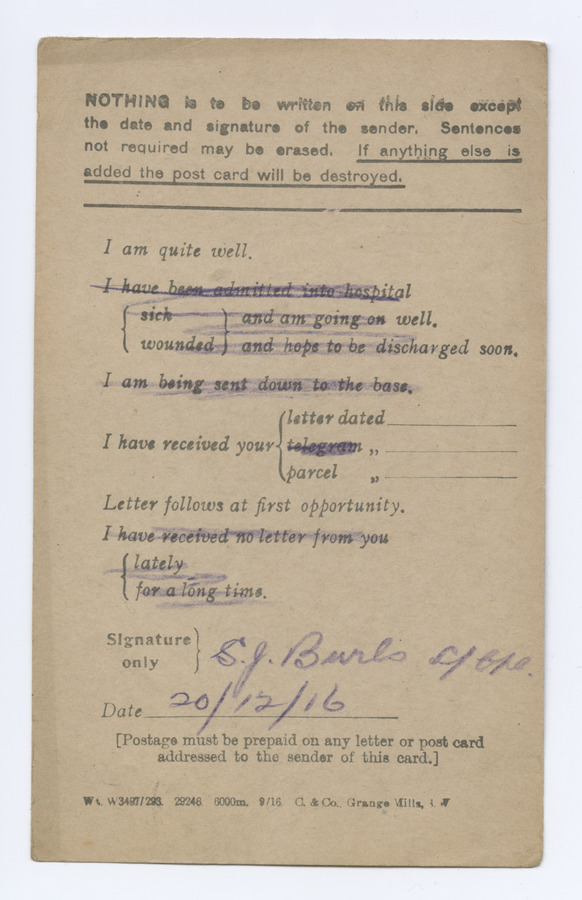 NOTHING is to be written on this side except
the date and signature of the sender. Sentences
not required may be erased. If anything else is
added the post card will be destroyed.
I am quite well.
I have been admitted into hospital
{ sick } and am going on well.
{ wounded } and hope to be discharged soon.
I am being sent down to the base.
I have received your { letter dated
telegram „
parcel „
Letter follows at first opportunity.
I have received no letter from you
{ lately
for a long time.
Signature only } S.J. Burls L/Cpl.
Date 20/12/16
[Postage must be prepaid on any letter or post card
addressed to the sender of this card.]
W3497/293. 29246. 6000m. 9/16. C. & Co., Grange Mills,